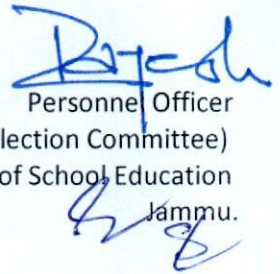 Rajesh
Personnel Officer
lection Committee)
of School Education
Jammu.